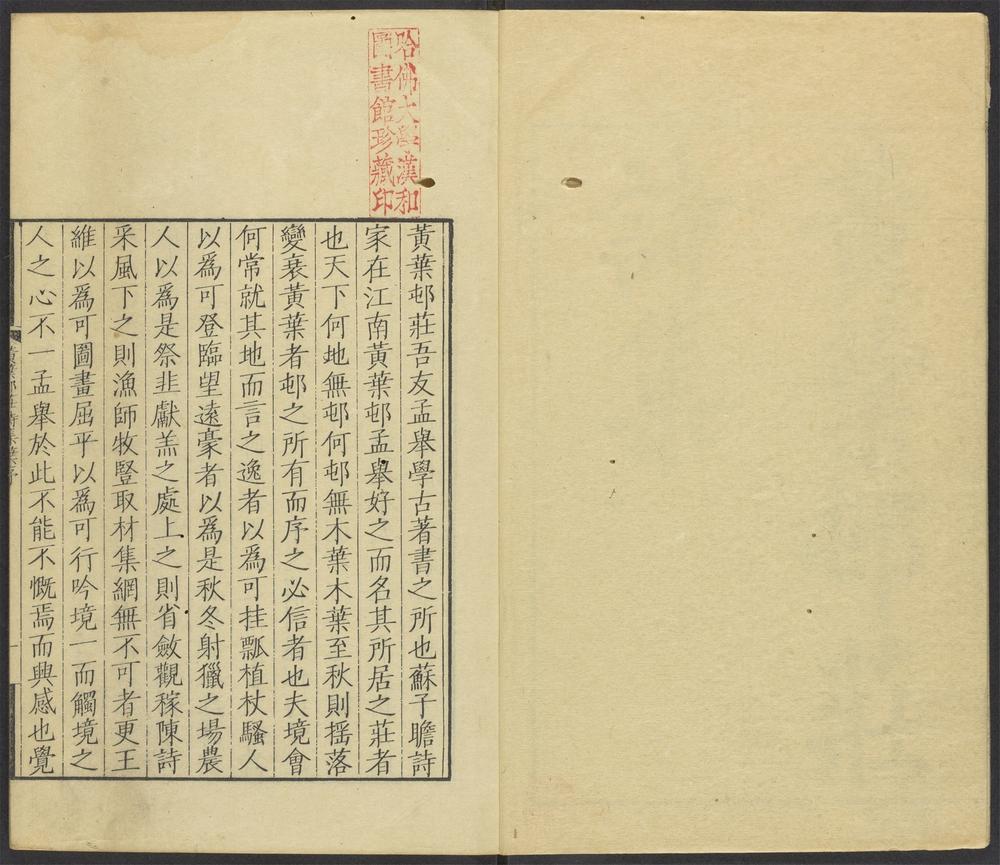 哈佛大學漢和
圖書館珍藏印
黃葉邨莊吾友孟舉學古著書之所也蘇子瞻詩
家在江南黃葉邨孟舉好之而名其所居之莊者
也天下何地無邨何邨無木葉木葉至秋則搖落
變衰黃葉者邨之所有而序之必信者也夫境會
何常就其地而言之逸者以爲可挂瓢植杖騷人
以爲可登臨望遠豪者以爲是秋冬射獵之場農
人以爲是祭韭獻羔之處上之則省斂觀稼陳詩
采風下之則漁師牧豎取材集網無不可者更王
維以爲可圖畫屈平以爲可行吟境一而觸境之
人之心不一孟舉於此不能不慨焉而興感也覺
黃葉邨莊詩集序
一